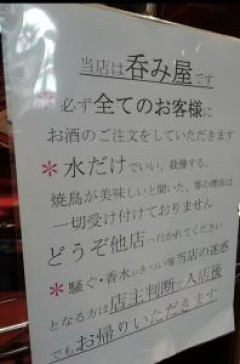 当店は呑み屋です
＊必ず全てのお客様に
お酒のご注文をしていただきます
＊水だけでいい、我慢する、
焼鳥が美味しいと聞いた、等の理由は
一切受け付けておりません
どうぞ他店へ行かれてください
＊騒ぐ・香水がきつい等当店の迷惑
となる方は店主判断で入店後
でもお帰りいただきます